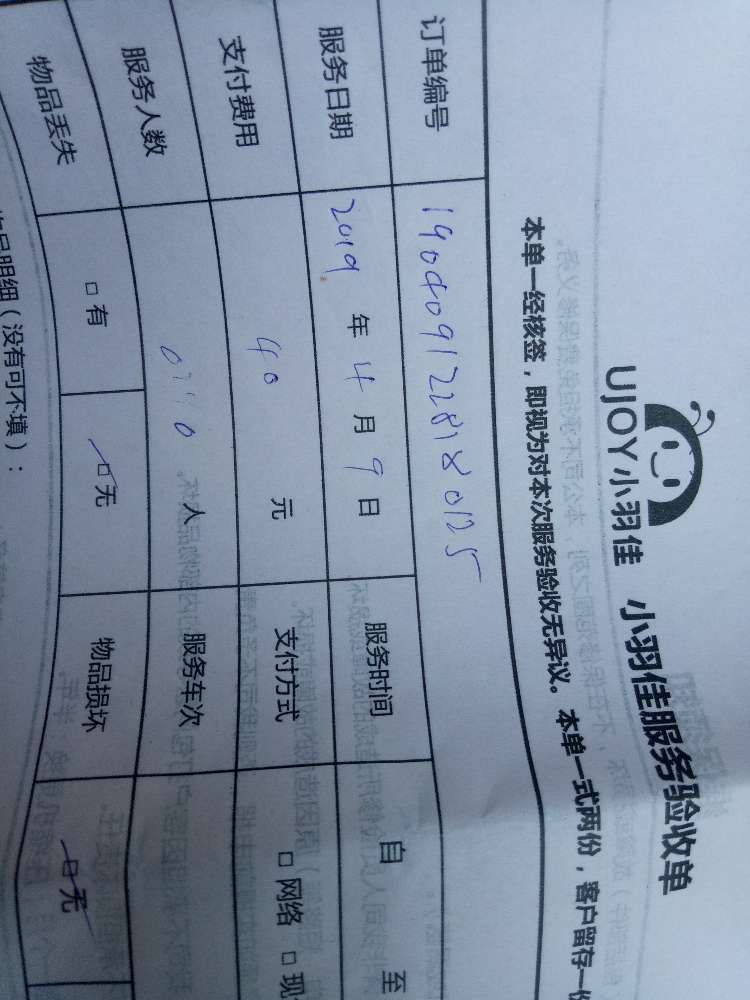 UJOY小羽佳 小羽佳服务验收单
本单一经核签，即视为对本次服务验收无异议。本单一式两份，客户留存一份
订单编号
服务日期 2019 年 4 月 9 日 服务时间 自 至
支付费用 40 元 支付方式 □ 网络 □ 现
服务人数 人 服务车次
物品丢失 □ 有 □ 无 物品损坏 □ 无
物品明细（没有可不填）：